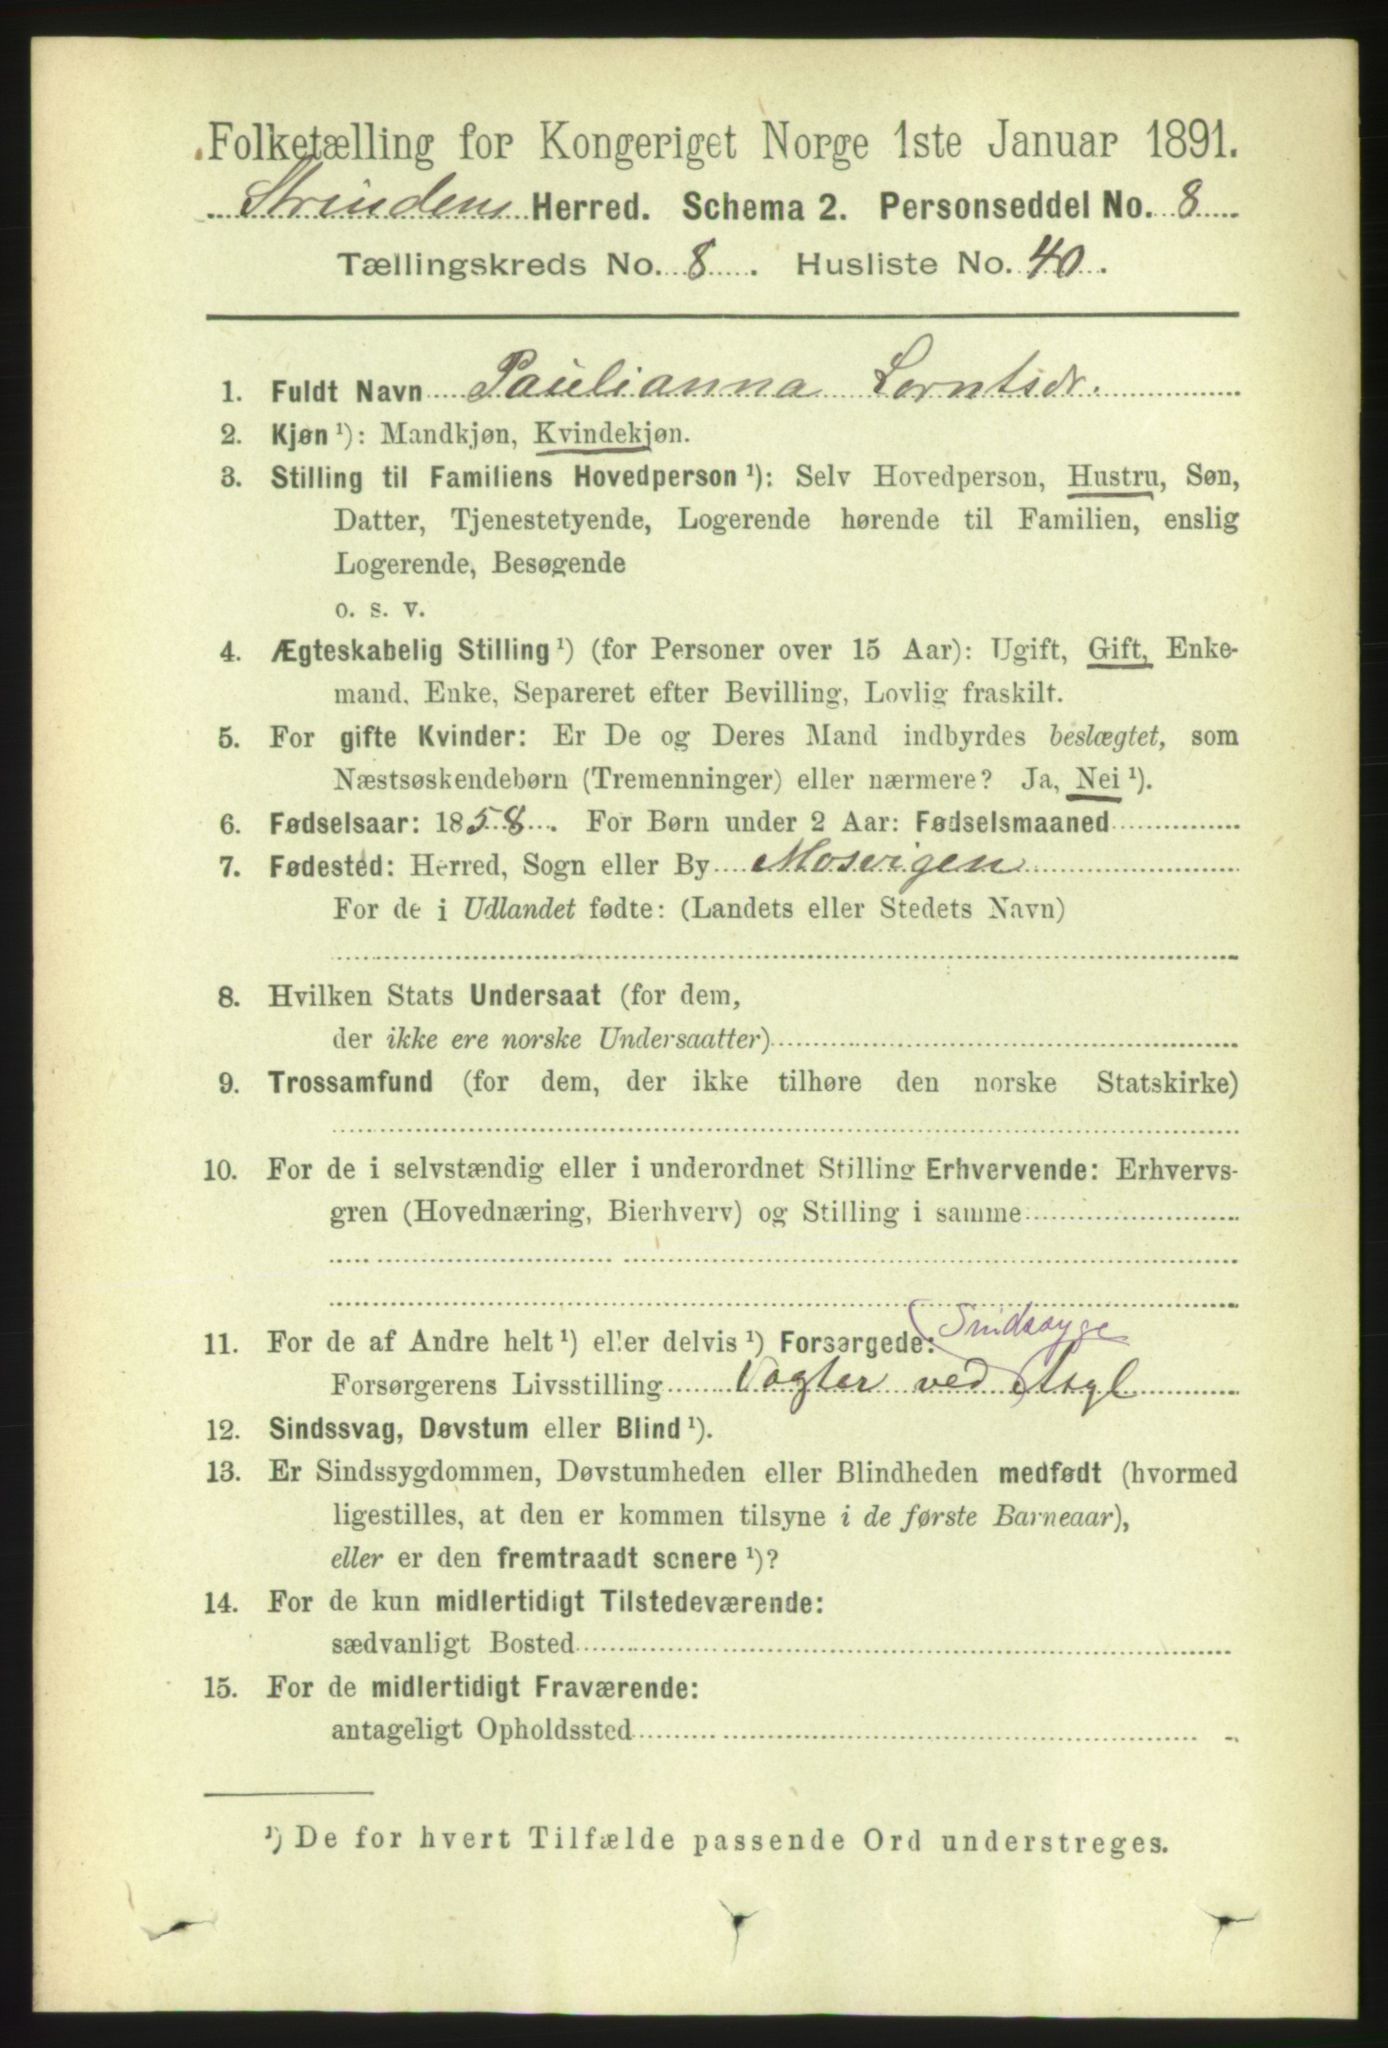 Folketælling for Kongeriget Norge 1ste Januar 1891.
Strinden Herred. Schema 2. Personseddel No. 8
Tællingskreds No. 8. Husliste No. 40.
1. Fuldt Navn Paulianna Lorntsdr.
2. Kjøn ¹): Mandkjøn, Kvindekjøn.
3. Stilling til Familiens Hovedperson ¹): Selv Hovedperson, Hustru, Søn,
Datter, Tjenestetyende, Logerende hørende til Familien, enslig
Logerende, Besøgende
o. s. v.
4. Ægteskabelig Stilling ¹) (for Personer over 15 Aar): Ugift, Gift, Enke-
mand, Enke, Separeret efter Bevilling, Lovlig fraskilt.
5. For gifte Kvinder: Er De og Deres Mand indbyrdes beslægtet, som
Næstsøskendebørn (Tremenninger) eller nærmere? Ja, Nei ¹).
6. Fødselsaar: 1858. For Børn under 2 Aar: Fødselsmaaned
7. Fødested: Herred, Sogn eller By Mosvigen
For de i Udlandet fødte: (Landets eller Stedets Navn)
8. Hvilken Stats Undersaat (for dem,
der ikke ere norske Undersaatter)
9. Trossamfund (for dem, der ikke tilhøre den norske Statskirke)
10. For de i selvstændig eller i underordnet Stilling Erhvervende: Erhvervs-
gren (Hovednæring, Bierhverv) og Stilling i samme
Sindssyge
11. For de af Andre helt ¹) eller delvis ¹) Forsørgede:
Forsørgerens Livsstilling Vogter ved Asyl
12. Sindssvag, Døvstum eller Blind ¹).
13. Er Sindssygdommen, Døvstumheden eller Blindheden medfødt (hvormed
ligestilles, at den er kommen tilsyne i de første Barneaar),
eller er den fremtraadt senere ¹)?
14. For de kun midlertidigt Tilstedeværende:
sædvanligt Bosted
15. For de midlertidigt Fraværende:
antageligt Opholdssted
¹) De for hvert Tilfælde passende Ord understreges.